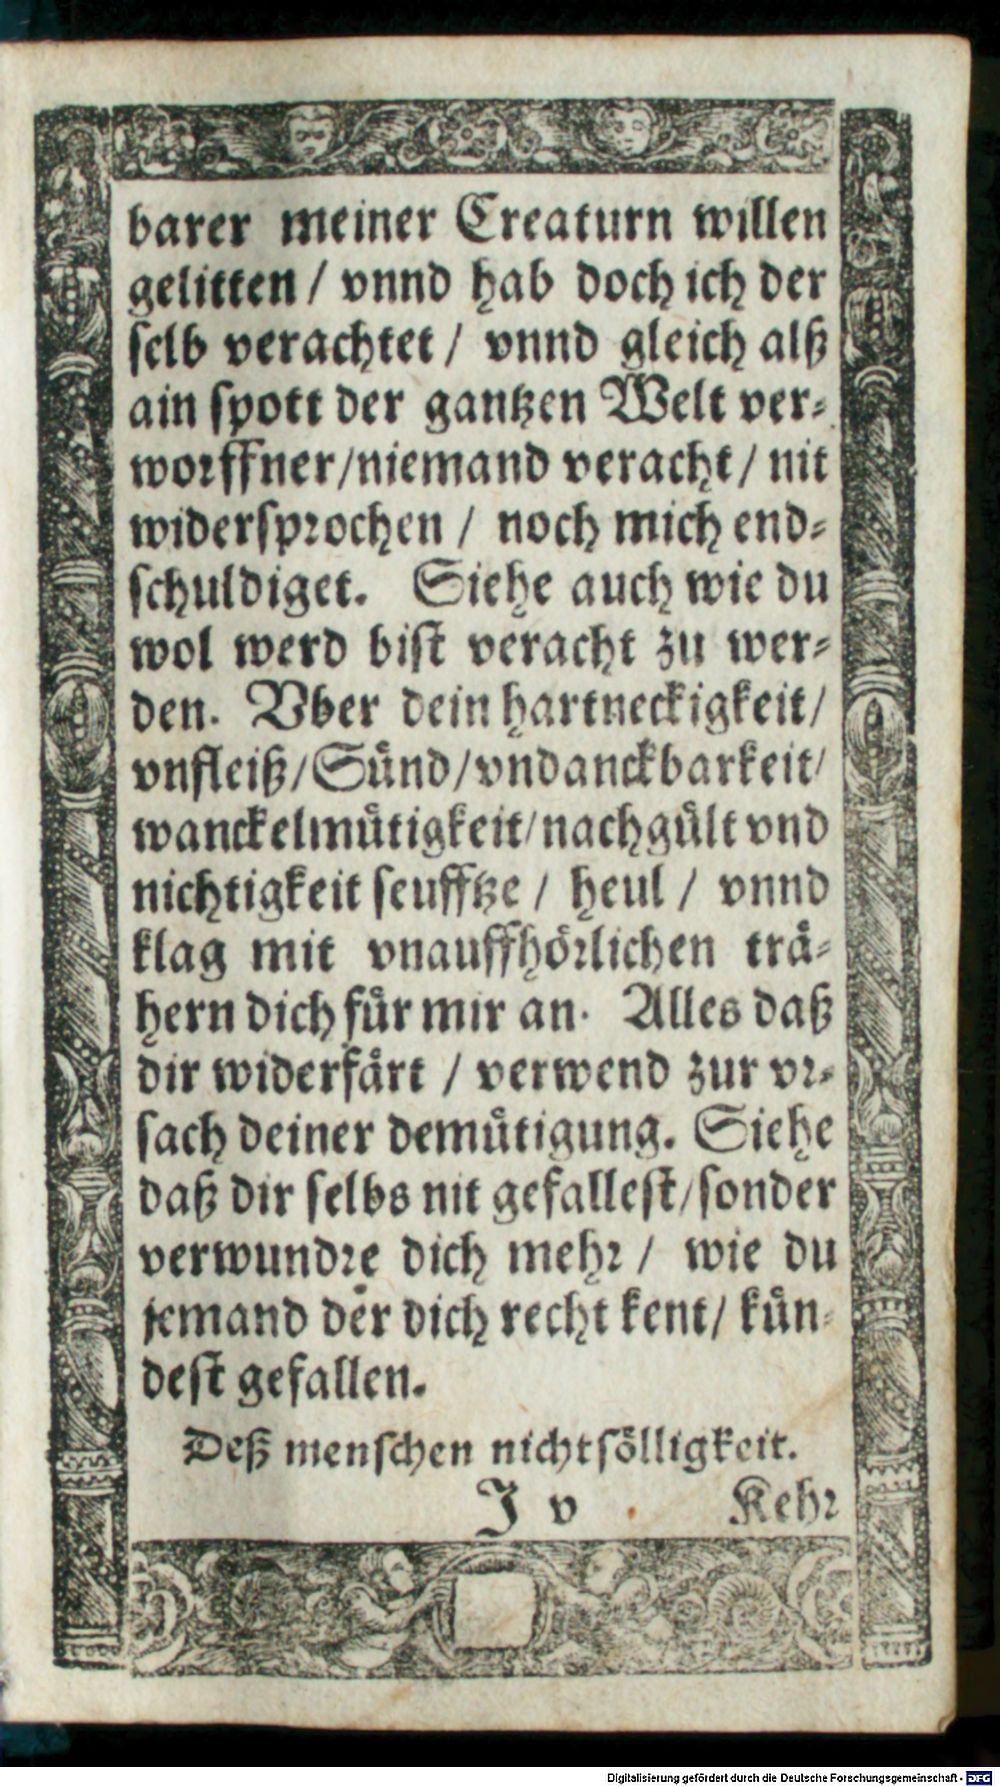 barer meiner Creaturn willen
gelitten / vnnd hab doch ich der
selb verachtet / vnnd gleich alß
ain spott der gantzen Welt ver⸗
worffner/niemand veracht / nit
widersprochen / noch mich end⸗
schuldiget. Siehe auch wie du
wol werd bist veracht zu wer⸗
den. Vber dein hartneckigkeit/
vnfleiß/Sünd/vndanckbarkeit/
wanckelmütigkeit/nachgült vnd
nichtigkeit seufftze / heul / vnnd
klag mit vnauffhörlichen trä⸗
hern dich für mir an. Alles daß
dir widerfärt / verwend zur vr⸗
sach deiner demütigung. Siehe
daß dir selbs nit gefallest/sonder
verwundre dich mehr / wie du
jemand der dich recht kent/ kün⸗
dest gefallen.
Deß menschen nichtsölligkeit.
J v Kehr
Digitalisierung gefördert durch die Deutsche Forschungsgemeinschaft - DFG